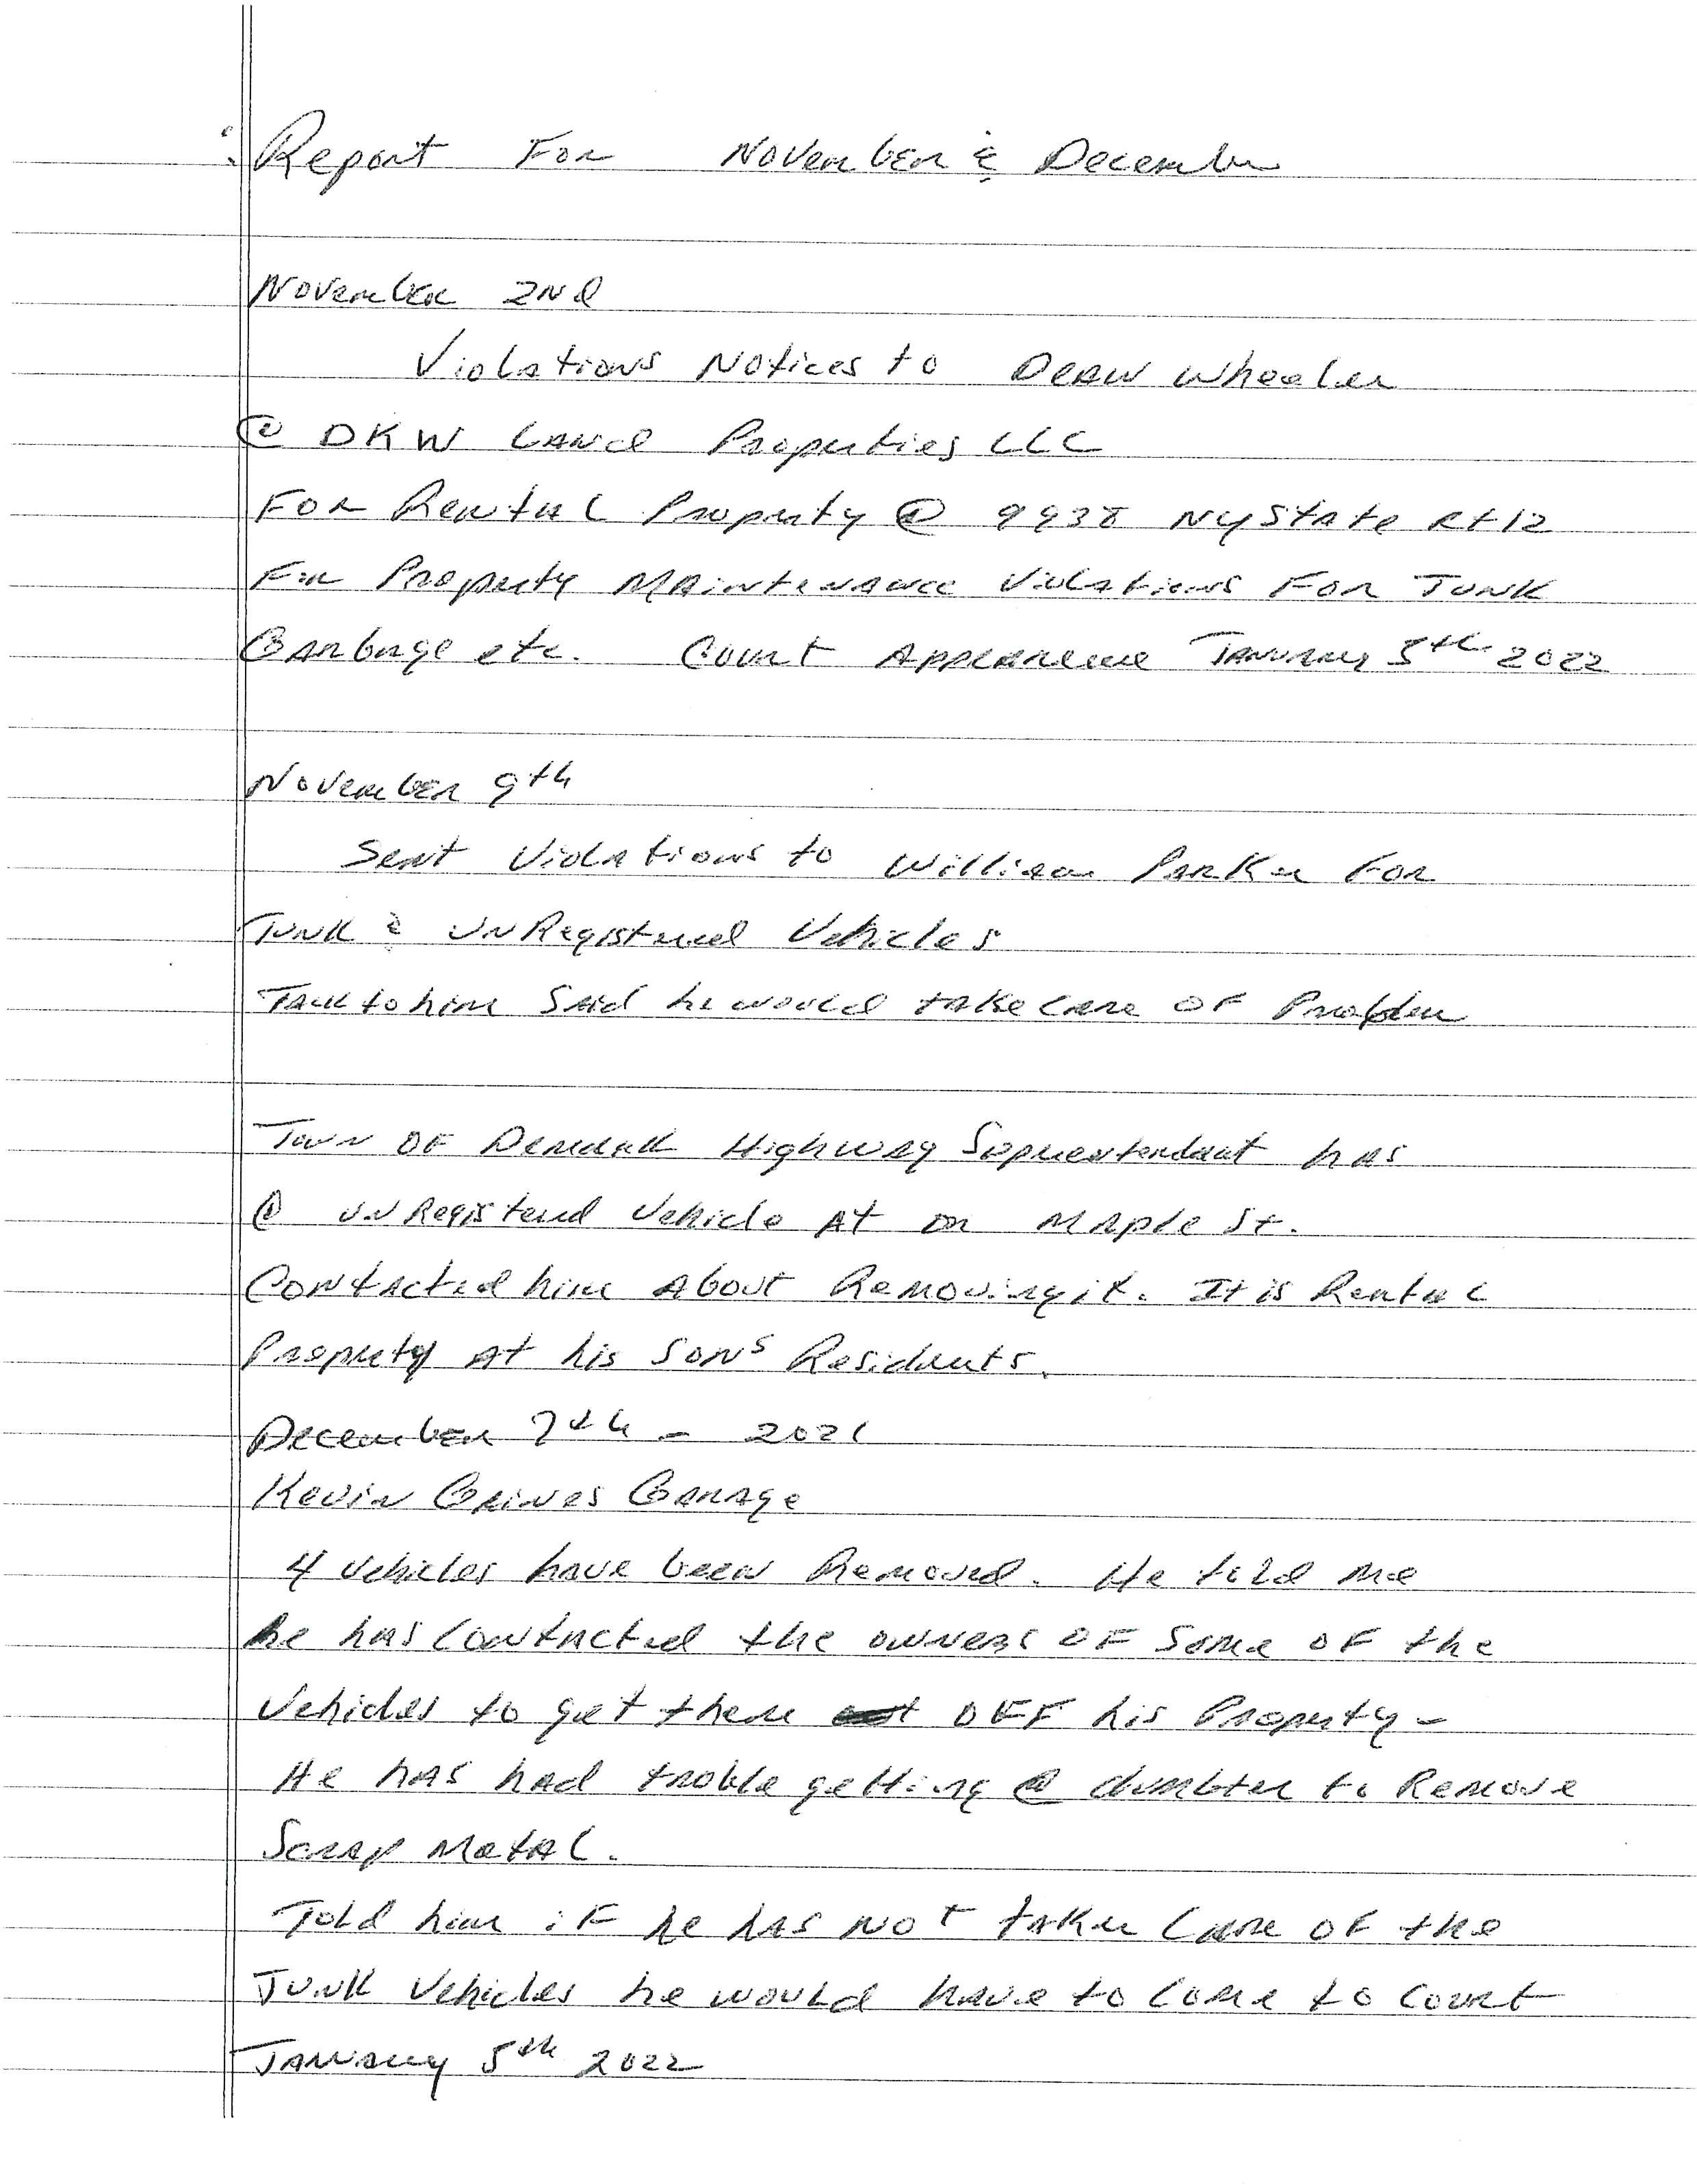 Report For November & December
November 2nd
Violations Notices to Dean Wheeler
@ DKW Land Properties LLC
For Rental Property @ 9938 NY State Rt 12
For Property Maintenance Violations For Junk
Garbage etc. Court Appearence January 5th 2022
November 9th
Sent Violations to William Parker For
Junk & UnRegistered Vehicles
Talk to him Said he would take care of Problem
Town of Denmark Highway Superentendant has
@ UnRegisterd Vehicle At on Maple St.
Contacted him About Removing it. It is Rental
Property At his Sons Residents.
December 7th - 2021
Kevin Garage
4 Vehicles have been Removed. He told me
he has Contacted the owners of Some of the
Vehicles to get them off his Property-
He has had troble getting @ dumbter to Remove
Scrap Metal.
Told him if he has Not taken Care of the
Junk Vehicles he would have to Come to Court
January 5th 2022